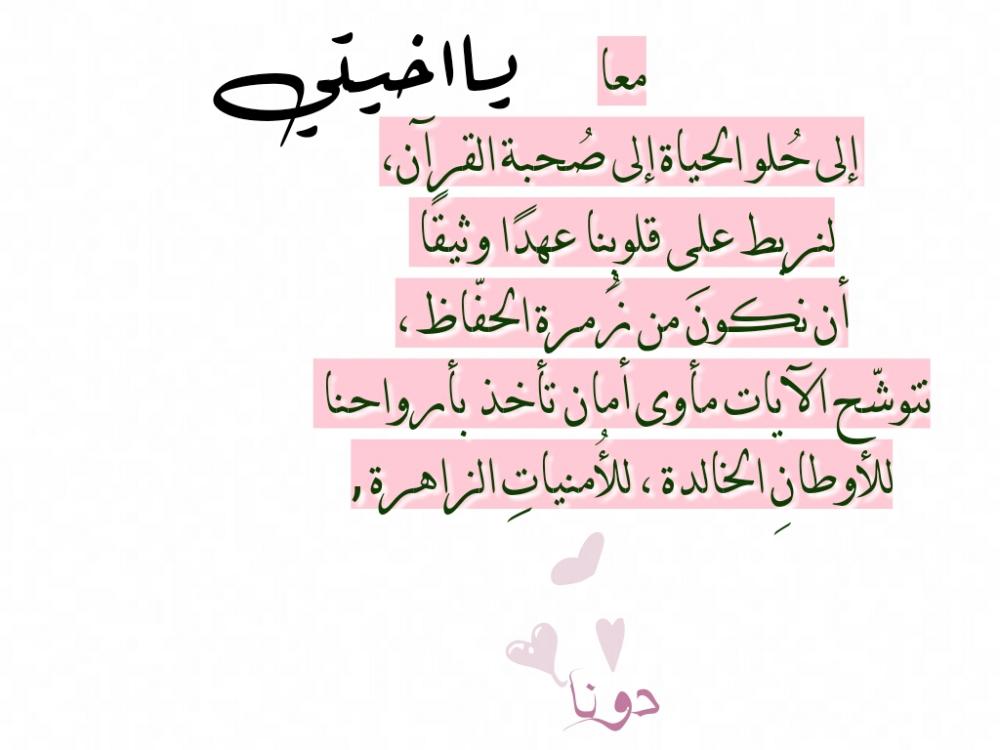 معا يا اخيتي
إلى حُلو الحياة إلى صُحبة القرآن،
لنربط على قلوبنا عهدًا وثيقًا
أن نكونَ من زُمرة الحفّاظ ،
تتوشّح الآيات مأوى أمان تأخذ بأرواحنا
للأوطانِ الخالدة ، للأُمنياتِ الزاهرة ,
دونا